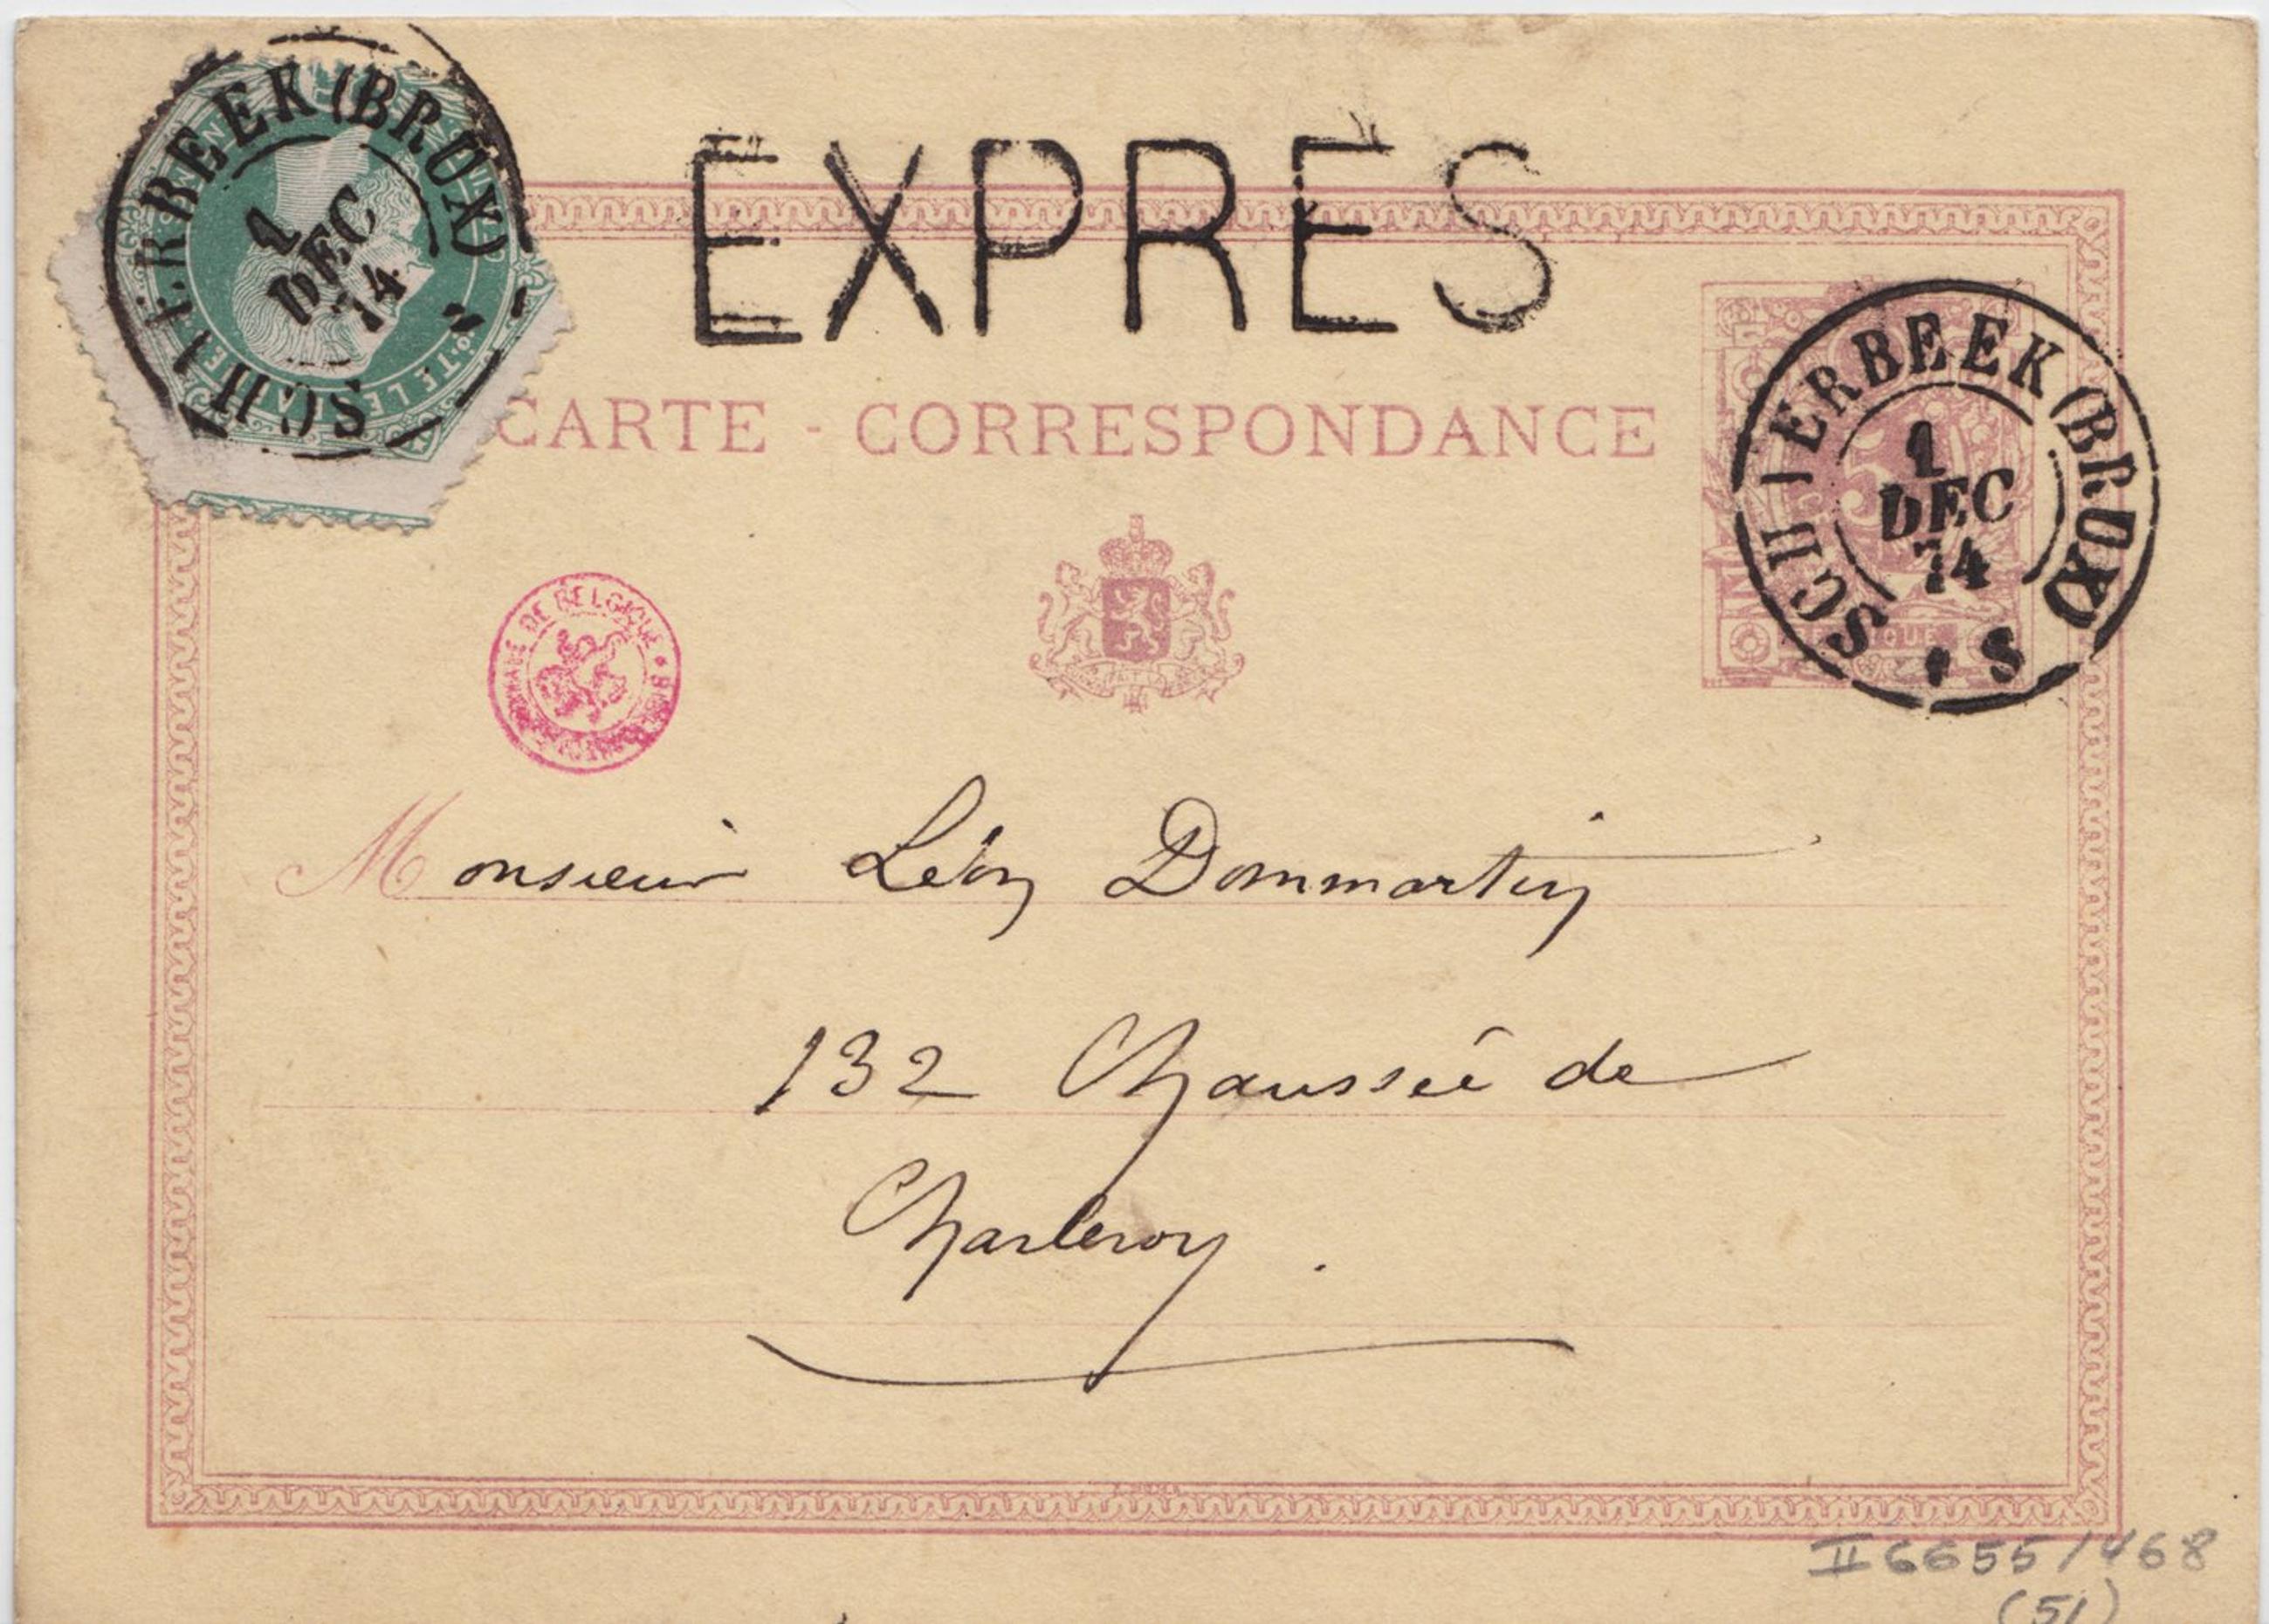 SCHAERBEEK (BRUX)
1
DEC
74
EXPRES
CARTE - CORRESPONDANCE
SCHAERBEEK (BRUX)
1
DEC
74
8
DE BELGIQUE
Monsieur Léon Dommartin
132 Chaussée de
Charleroy.
II 6655/468
(51)